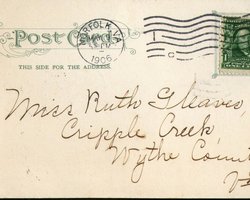 Post Card.
NORFOLK, VA.
1906
THIS SIDE FOR THE ADDRESS.
Miss Ruth Gleaves,
Cripple Creek
Wythe Coun